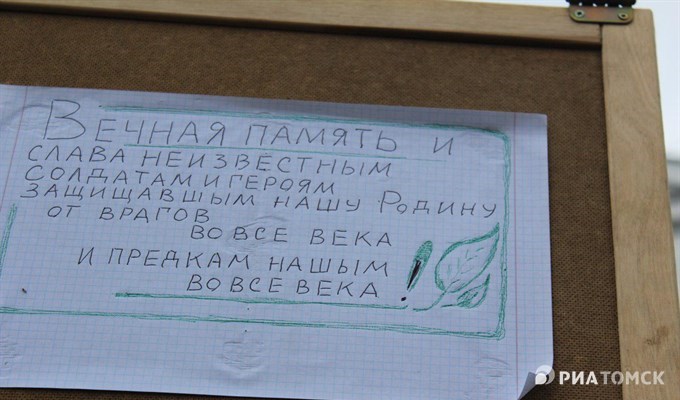 ВЕЧНАЯ ПАМЯТЬ И
СЛАВА НЕИЗВЕСТНЫМ
СОЛДАТАМ И ГЕРОЯМ
ЗАЩИЩАВШЫМ НАШУ РОДИНУ
ОТ ВРАГОВ
ВО ВСЕ ВЕКА
И ПРЕДКАМ НАШЫМ
ВО ВСЕ ВЕКА !
РИАТОМСК